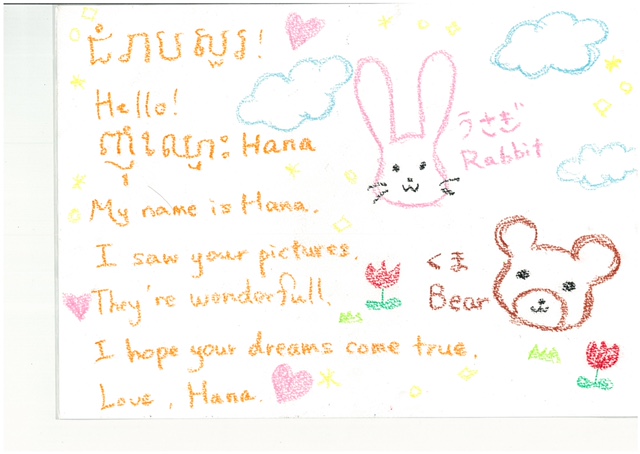 ជំរាបសួរ!
Hello!
ញុំឈ្មោះ Hana
My name is Hana.
I saw your pictures.
They're wonderfull.
I hope your dreams come true.
Love, Hana.
うさぎ
Rabbit
くま
Bear